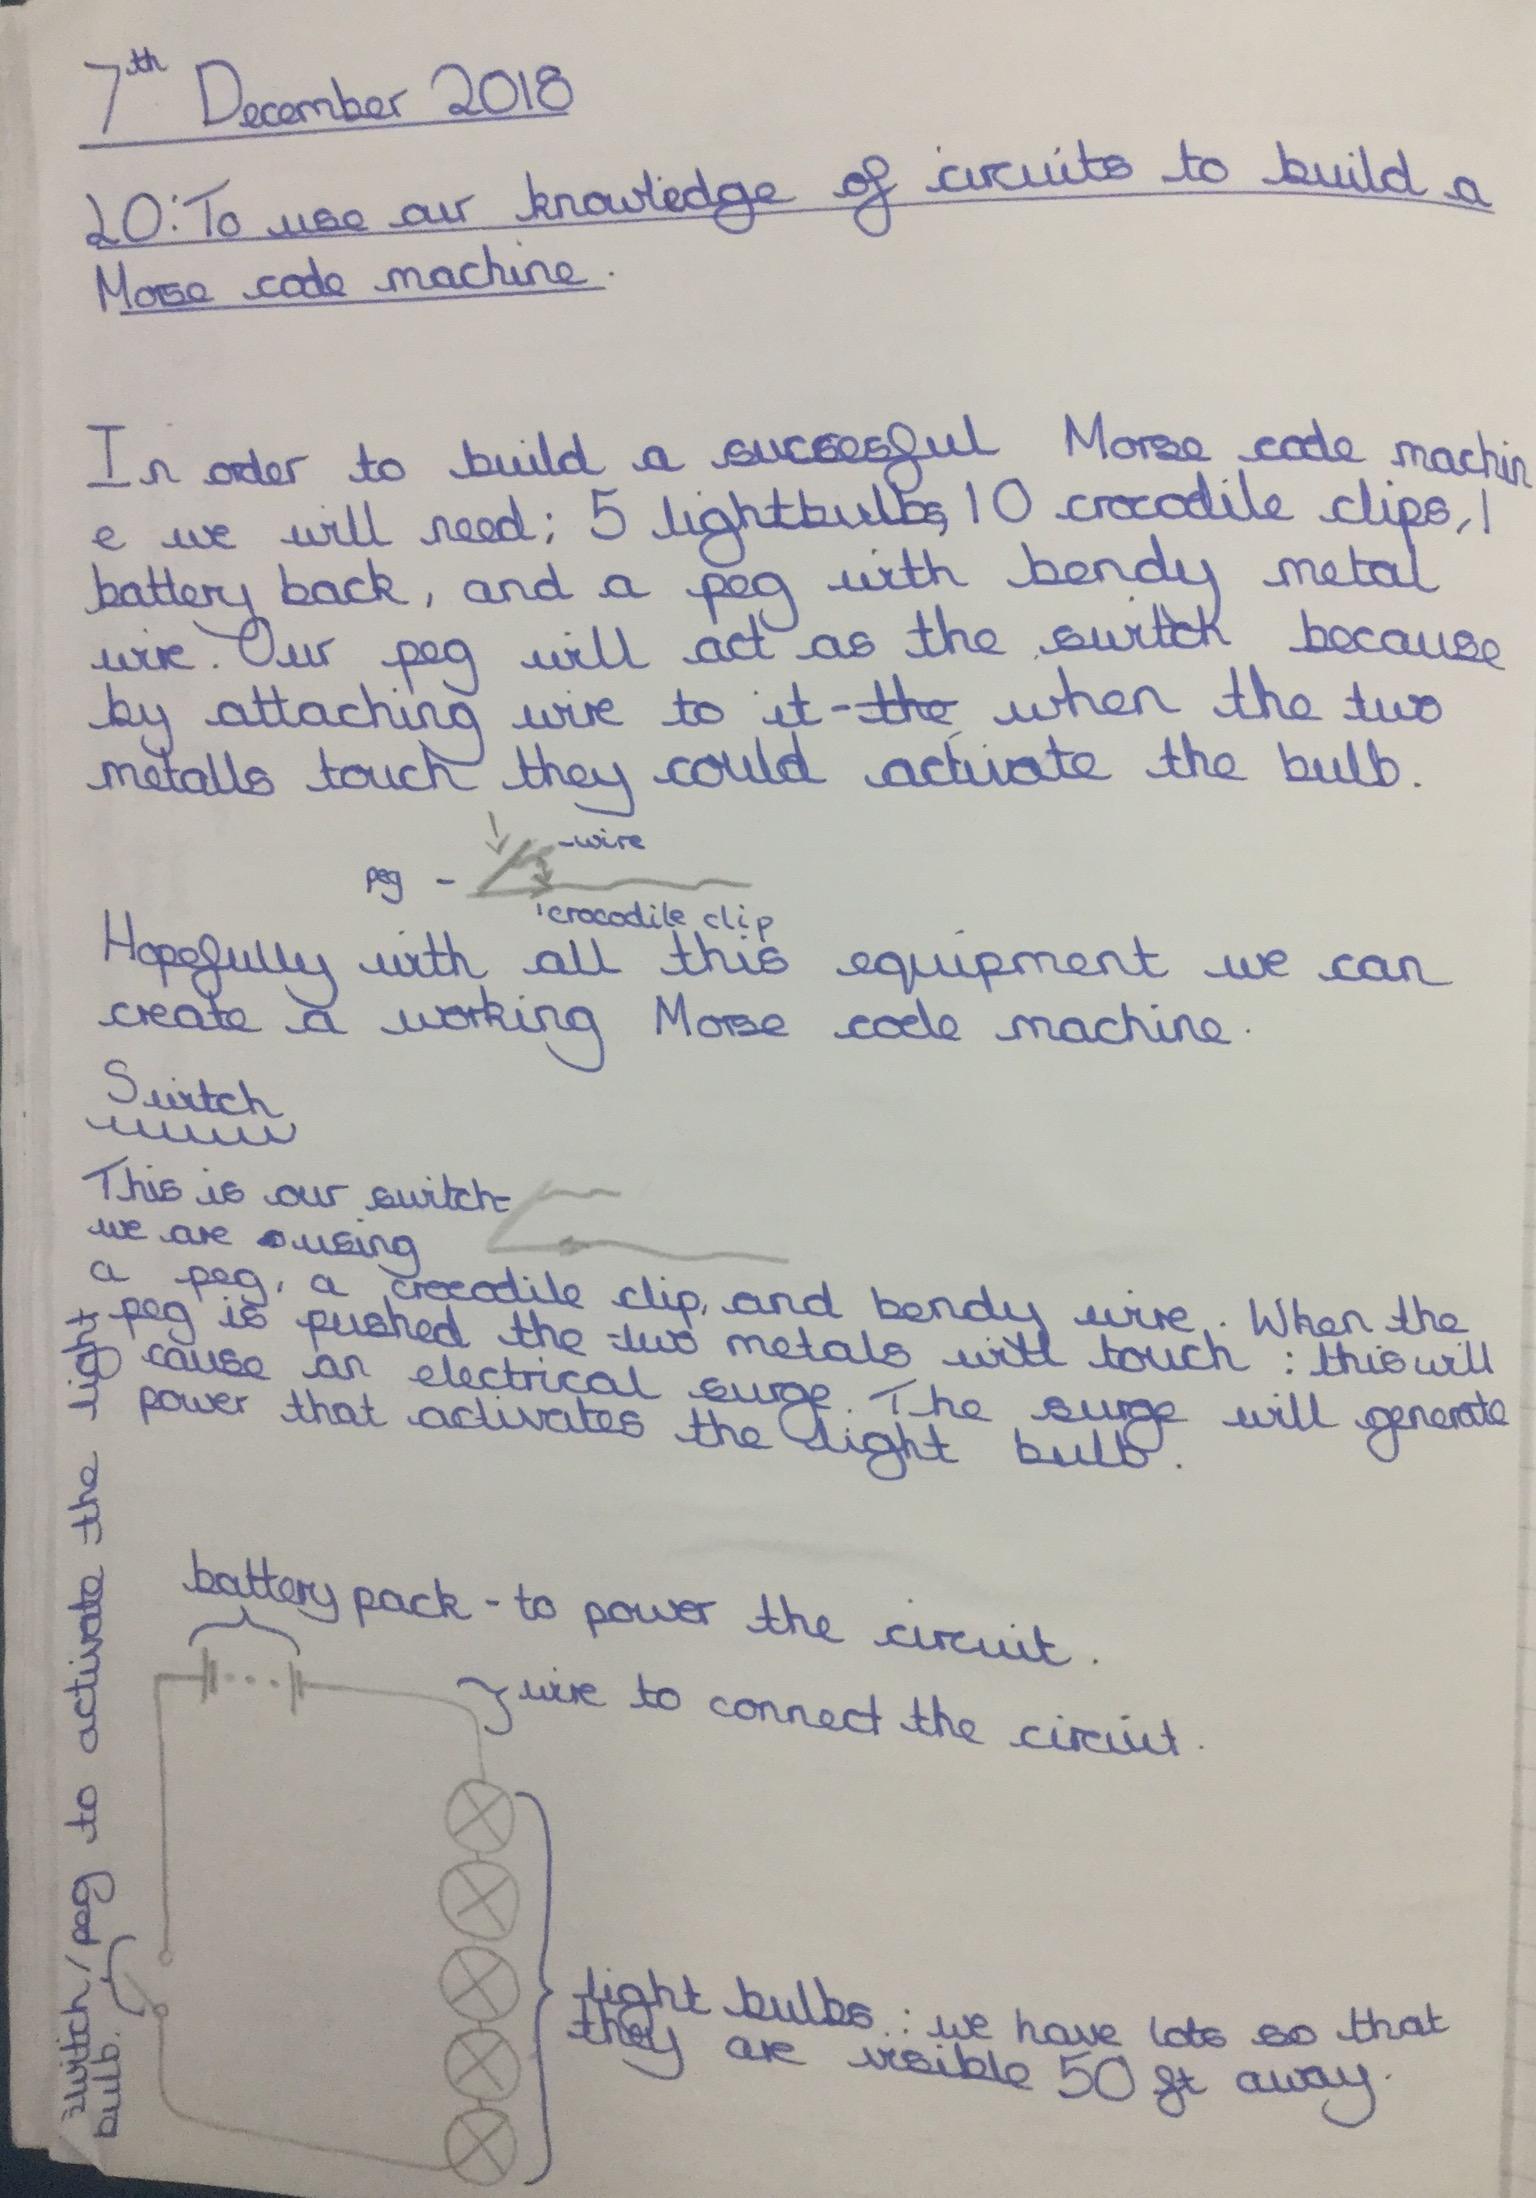 7th December 2018
LO: To use our knowledge of circuits to build a
Morse code machine.
In order to build a succesful Morse code machin
e we will need; 5 lightbulbs, 10 crocodile clips, 1
battery back, and a peg with bendy metal
wire. Our peg will act as the switch because
by attaching wire to it - the when the two
metalls touch they could activate the bulb.
-wire
peg -
crocodile clip
Hopefully with all this equipment we can
create a working Morse code machine.
Switch
This is our switch-
we are using
a peg, a crocodile clip, and bendy wire. When the
peg is pushed the two metals will touch : this will
cause an electrical surge. The surge will generate
power that activates the light bulb.
battery pack - to power the circuit.
wire to connect the circuit.
switch/peg to activate the light
bulb.
light bulbs : we have lots so that
they are visible 50 ft away.